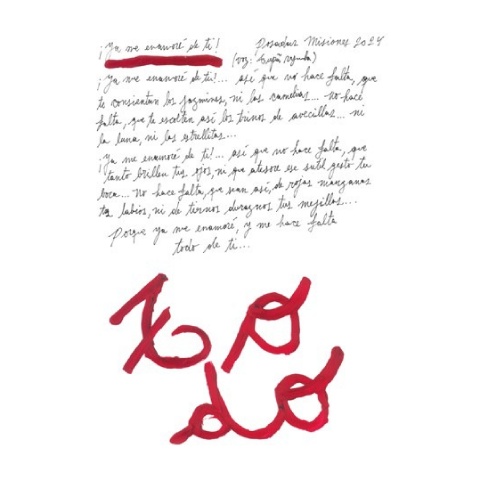 ¡Ya me enamoré de ti! Posadas Misiones 2024
(voz:
¡Ya me enamoré de ti!... así que no hace falta, que
te consientan los jazmines, ni las camelias... no hace
falta, que te escolten así los trinos de avecillas... ni
la luna, ni las estrellitas...
¡Ya me enamoré de ti!... así que no hace falta, que
tanto brillen tus ojos, ni que atesore ese sutil gesto tu
boca... No hace falta, que sean así, de rojas manzanas
tus labios, ni de tiernos duraznos tus mejillas....
Porque ya me enamoré, y me hace falta
todo de ti...
to
do